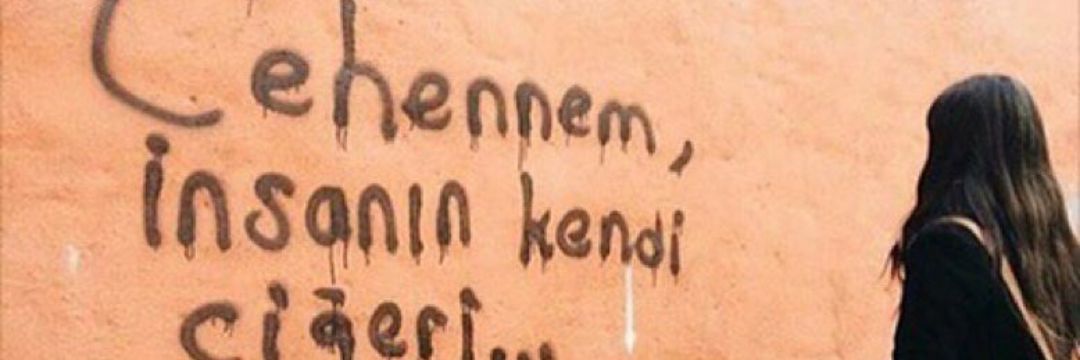 Cehennem,
insanın kendi
ciğeri...